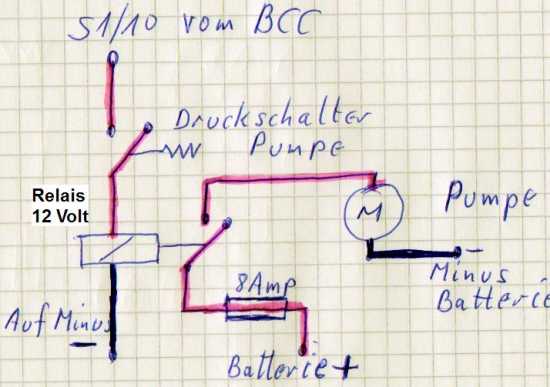 S1/10 vom BCC
Druckschalter
Pumpe
Relais
12 Volt
M
Pumpe
-
Minus
Batterie
8Amp
Auf Minus
-
Batterie +